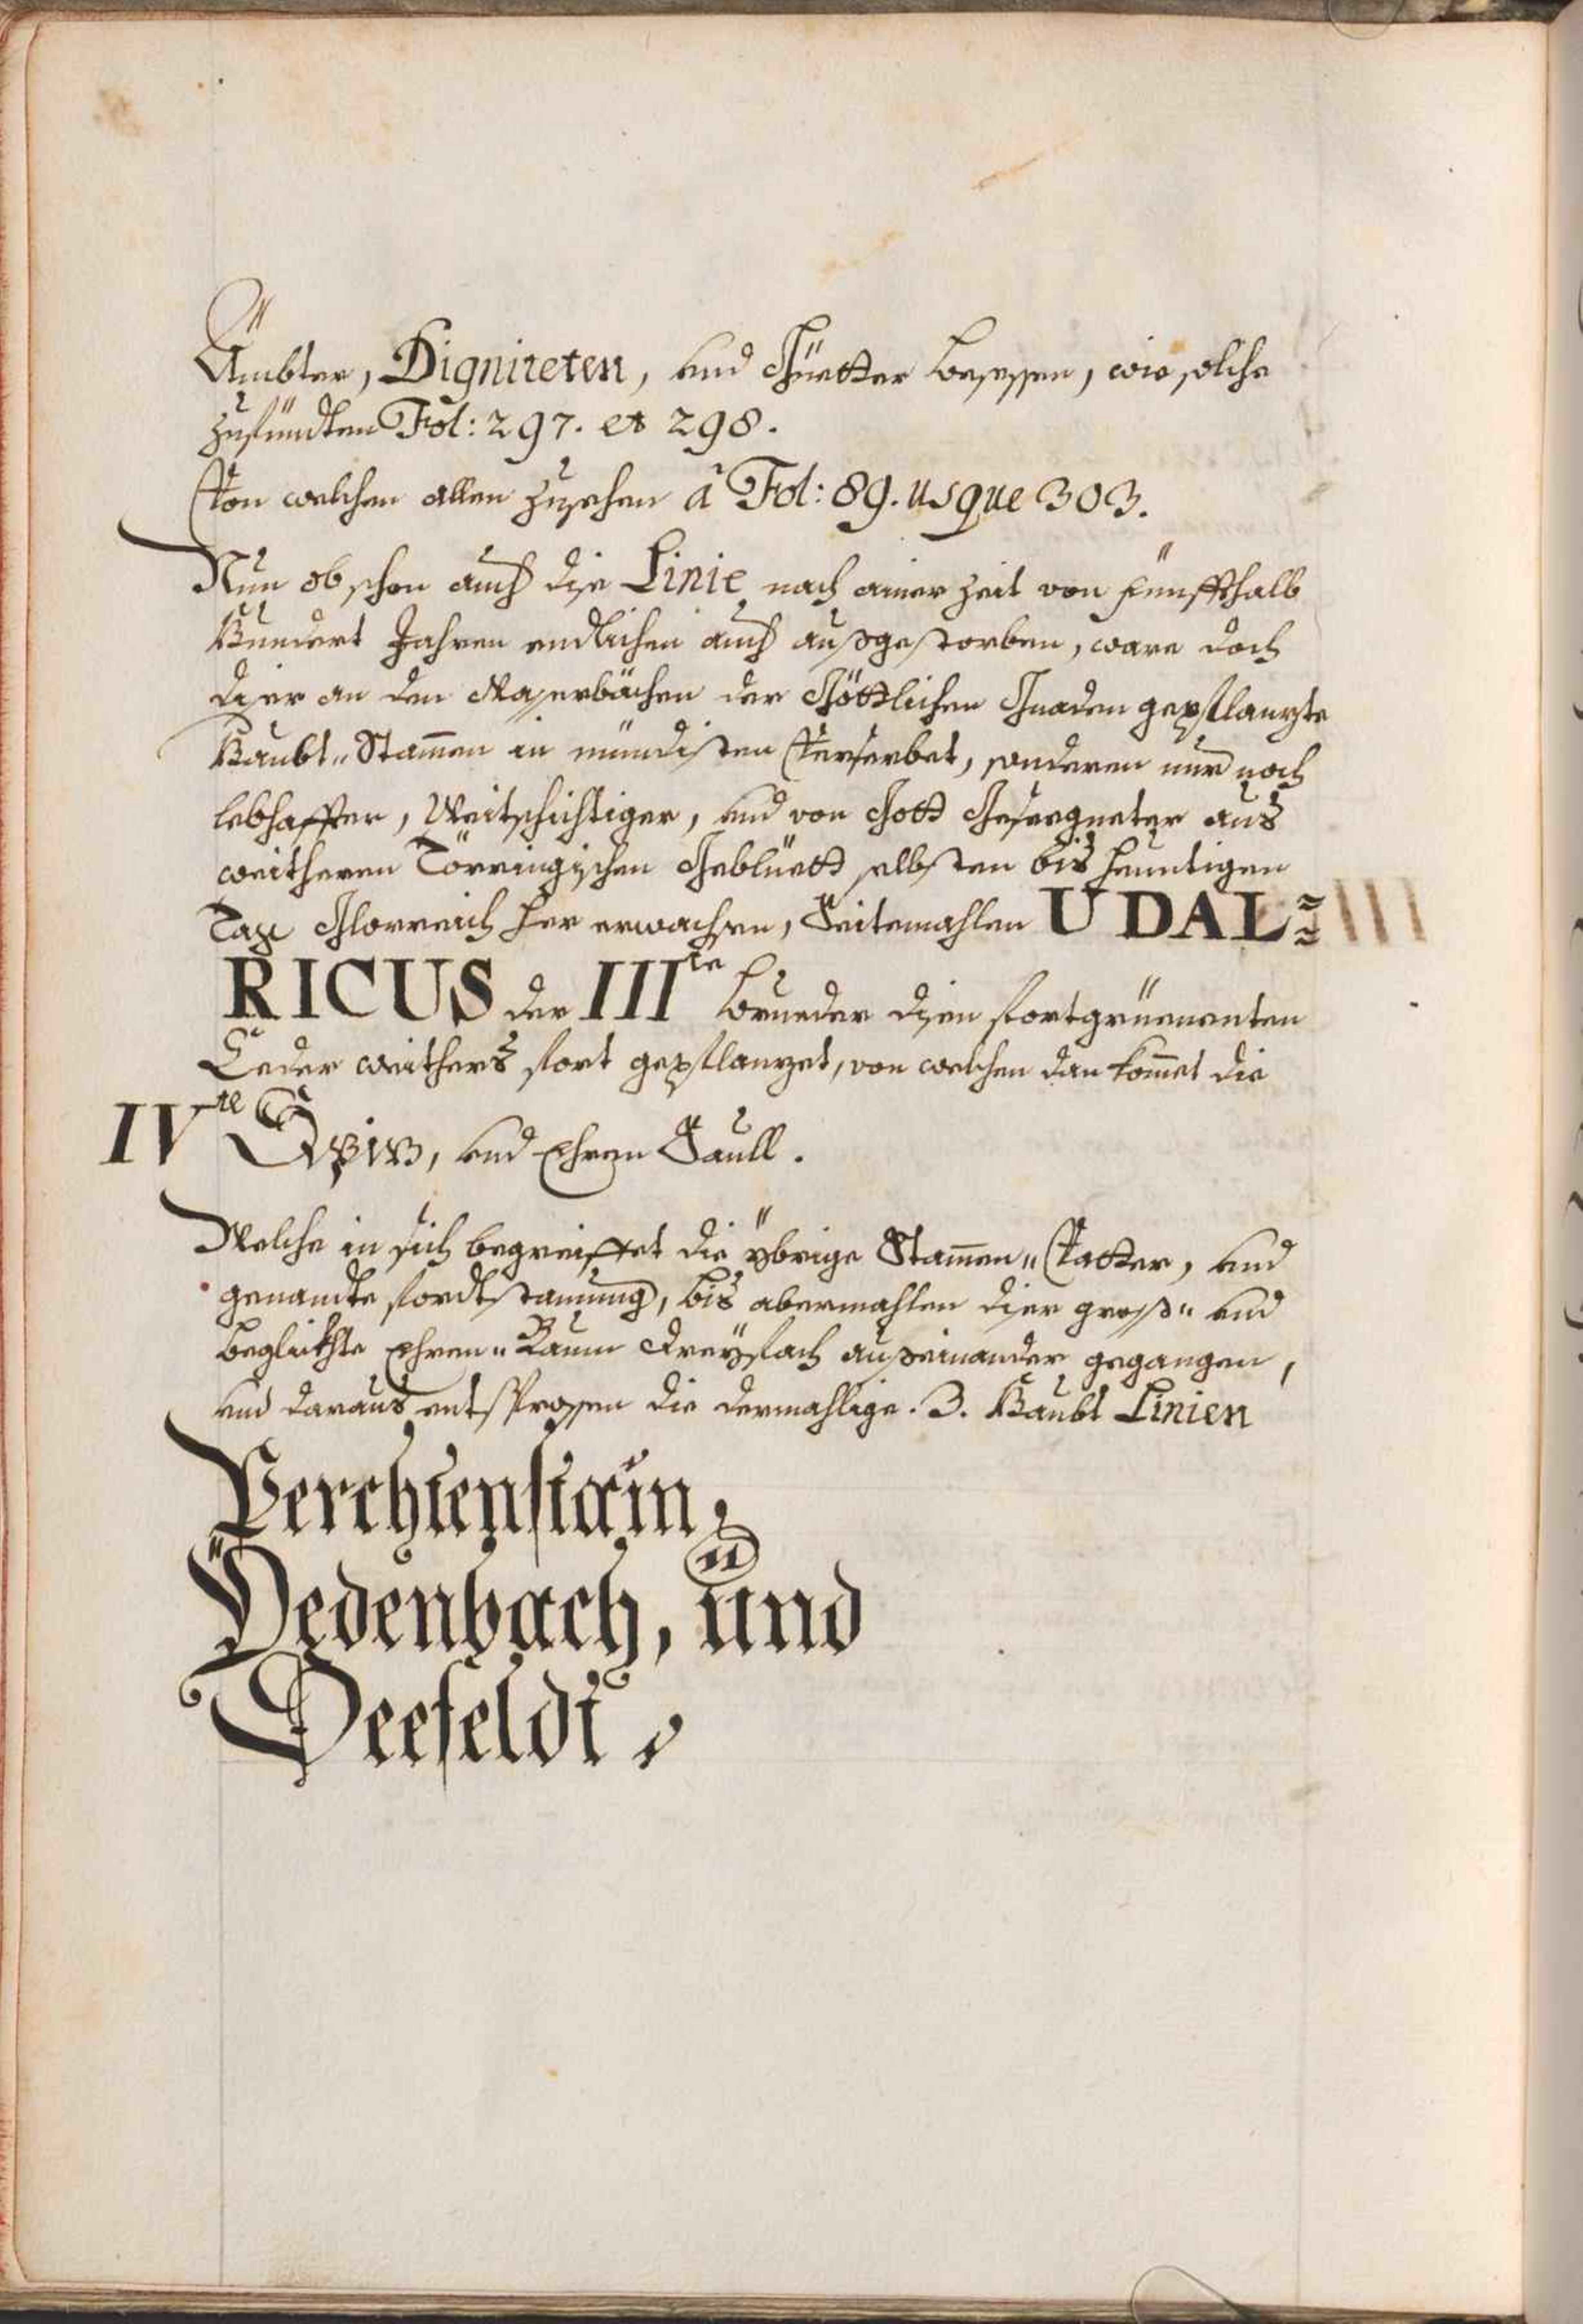 Ämbter, Digniteten, und Güetter besessen, wie solche
zufündten Fol: 297. et 298.
Von welchen allen zusehen à Fol: 89. usque 303.
Nun obschon auch dise Linie nach einer Zeit von fünffthalb
Hundert Jahren endlichen auch außgestorben, ware doch
diser an den Wasserbächen der Göttlichen Gnaden gepflanzte
Haubt-Stammen in mündisten Verserbet, sonderen nur noch
lebhaffter, Weitschichtiger, und von Gott Geseegneter aus
weitheren Törringischen Geblüett selbsten bis heuntigen
Tag Glorreich her erwachsen, Seitemahlen UDAL=
RICUS der III.te Brueder disen fortgrüenenten
Ceder weithers fort gepflanzet, von welchen dan kommet die
IV.te , und Ehren Saull.
Welche in sich begreiffet die ybrige Stammen-Vatter, und
genandte fordtstammung, bis abermahlen diser groß- und
beglickhte Ehren-Baum dreyfach außeinander gegangen,
und daraus entsprossen die dermahlige 3. Haubt Linien
Perchtenstain,
Pedenbach, und
Seefeldt.